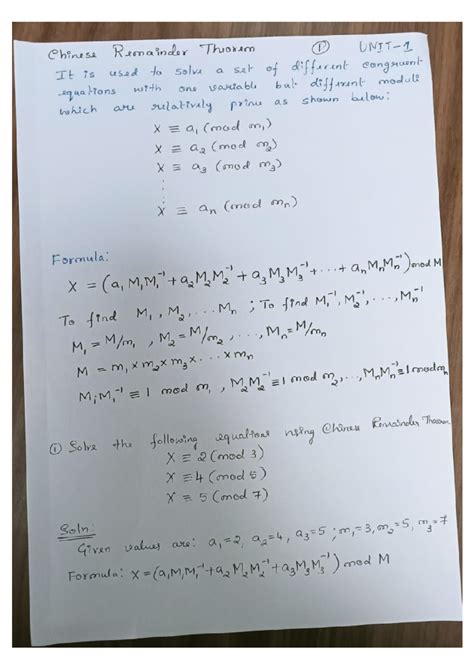 Chinese Remainder Theorem ① UNIT-1
It is used to solve a set of different congruent
equations with one variable but different moduli
which are relatively prime as shown below:
X ≡ a₁ (mod m₁)
X ≡ a₂ (mod m₂)
X ≡ a₃ (mod m₃)
⋮
X ≡ aₙ (mod mₙ)
Formula:
X = (a₁M₁M₁⁻¹ + a₂M₂M₂⁻¹ + a₃M₃M₃⁻¹ + ... + aₙMₙMₙ⁻¹) mod M
To find M₁, M₂, ... Mₙ ; To find M₁⁻¹, M₂⁻¹, ..., Mₙ⁻¹
M₁ = M/m₁, M₂ = M/m₂, ..., Mₙ = M/mₙ
M = m₁ × m₂ × m₃ × ... × mₙ
M₁M₁⁻¹ ≡ 1 mod m₁, M₂M₂⁻¹ ≡ 1 mod m₂, ..., MₙMₙ⁻¹ ≡ 1 mod mₙ
① Solve the following equations using Chinese Remainder Theorem
X ≡ 2 (mod 3)
X ≡ 4 (mod 5)
X ≡ 5 (mod 7)
Soln:
Given values are: a₁=2, a₂=4, a₃=5 ; m₁=3, m₂=5, m₃=7
Formula: X = (a₁M₁M₁⁻¹ + a₂M₂M₂⁻¹ + a₃M₃M₃⁻¹) mod M